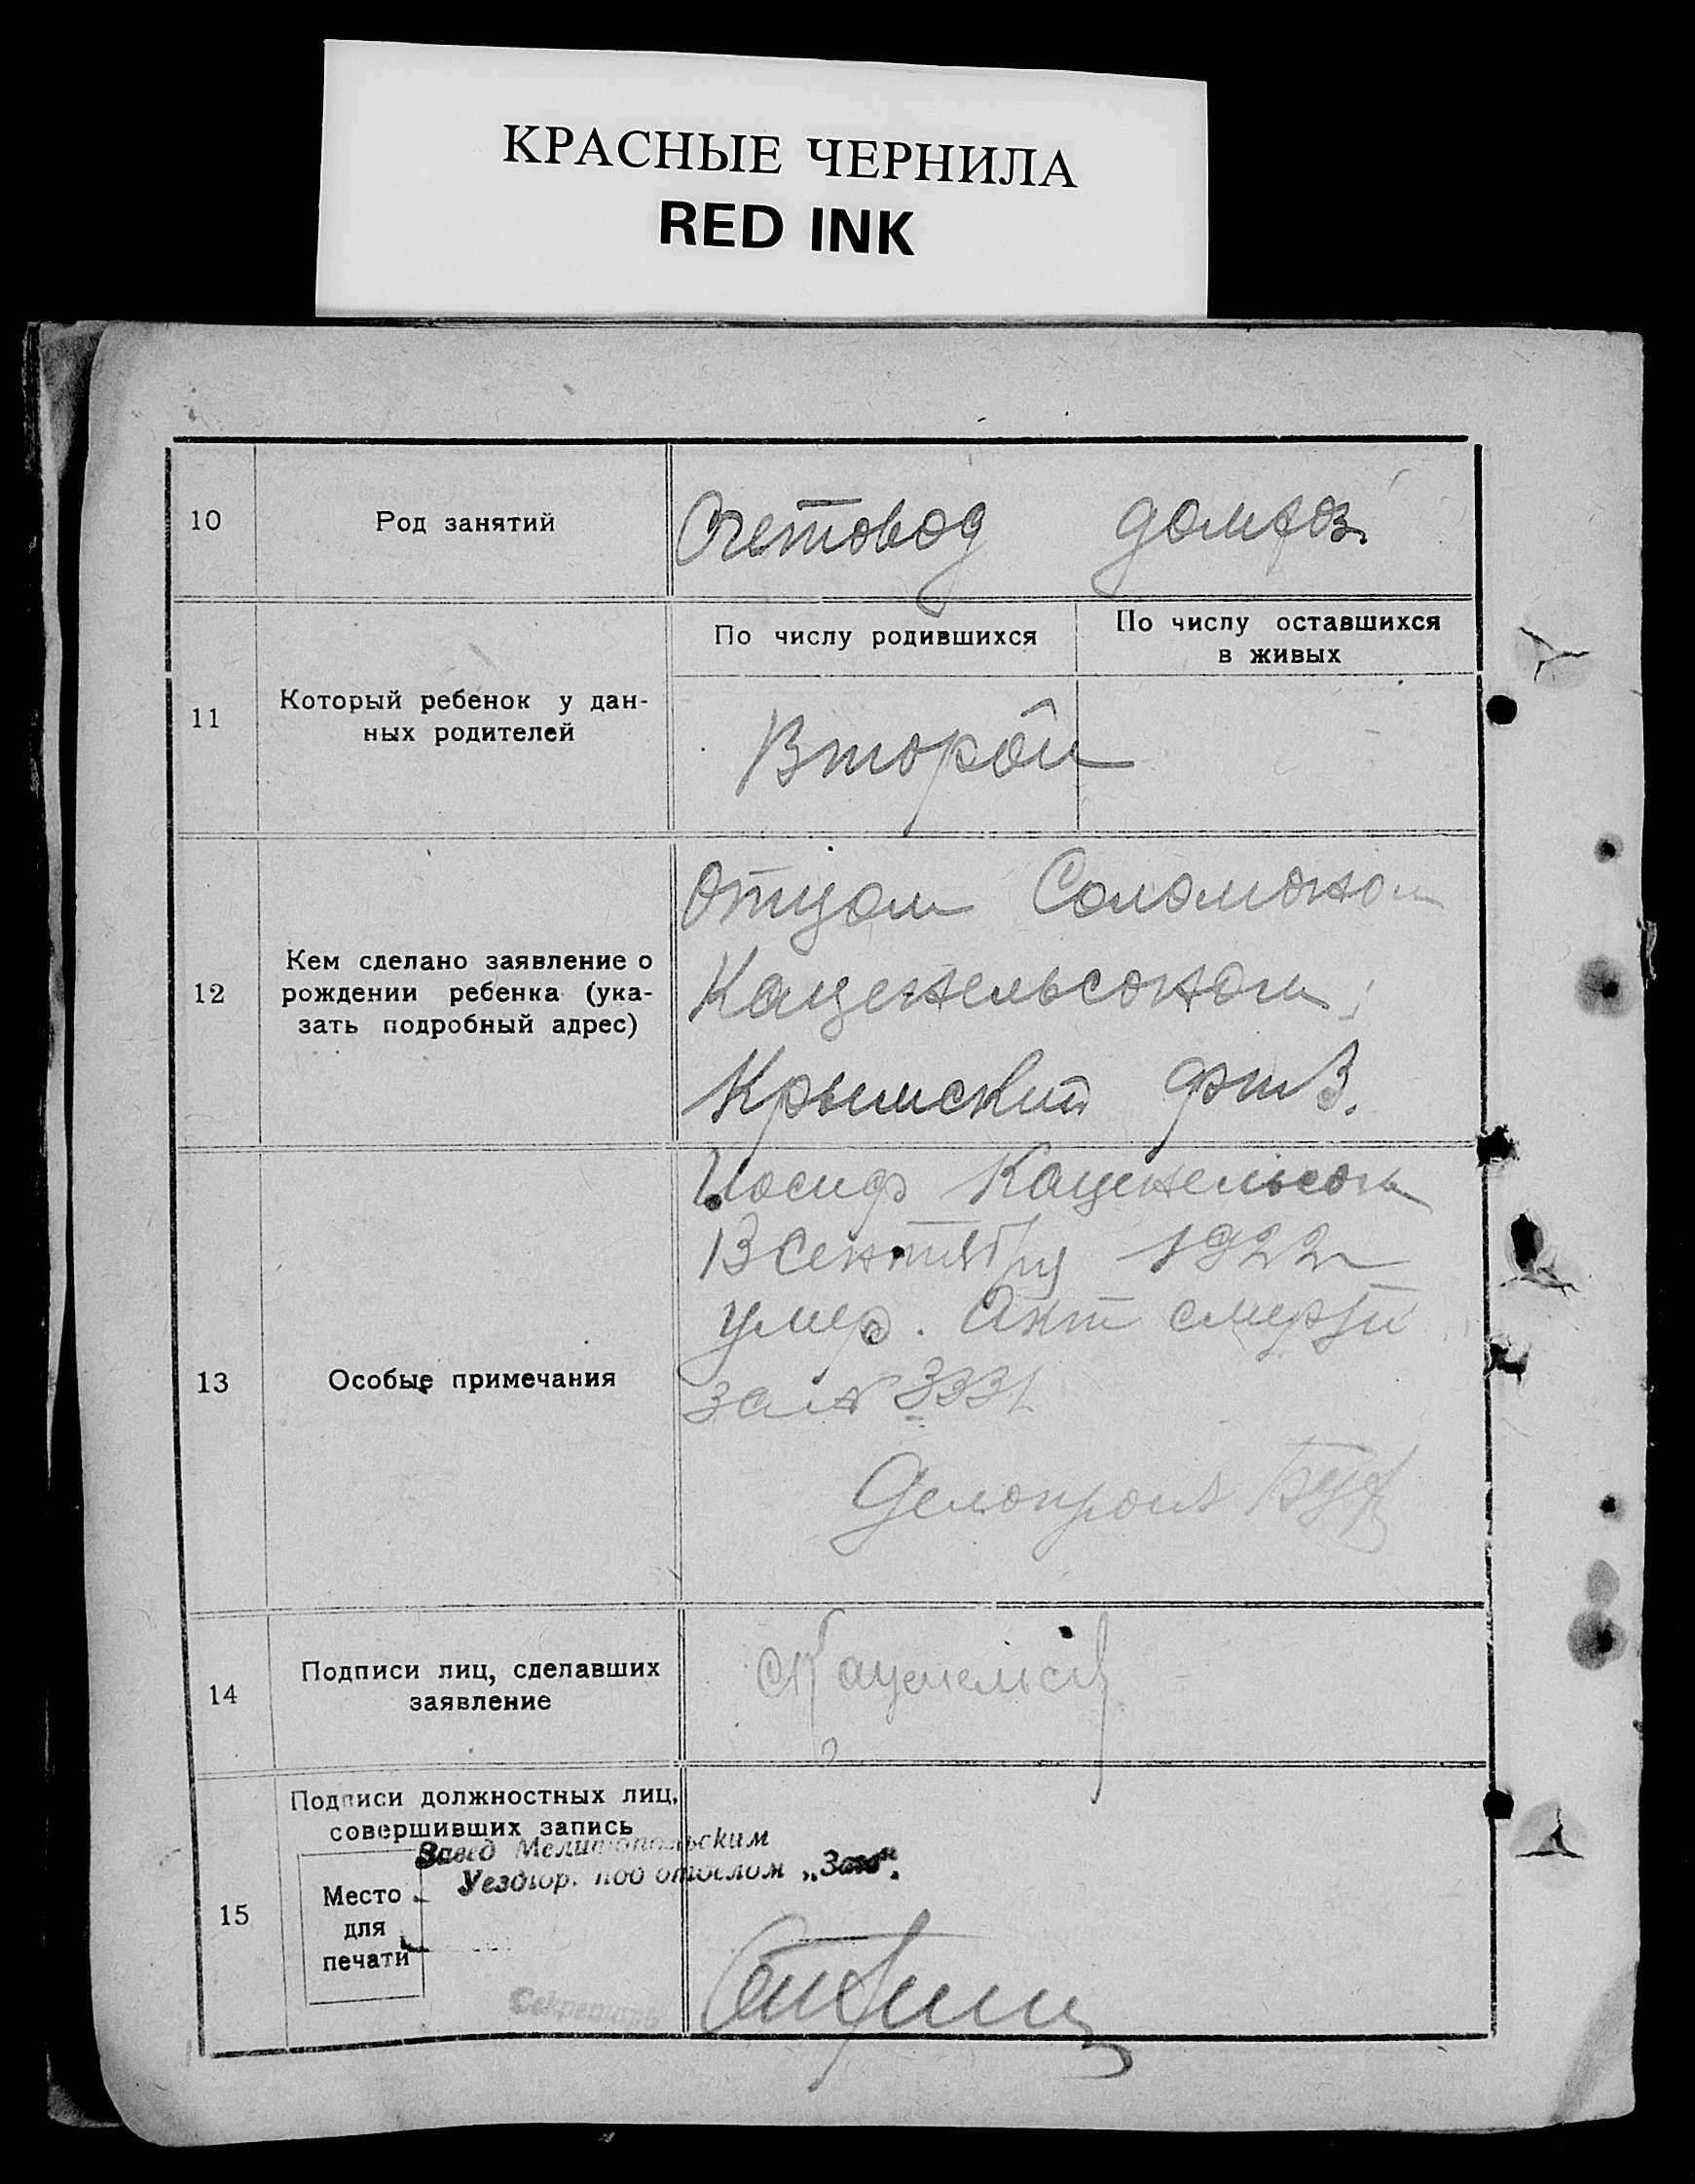 КРАСНЫЕ ЧЕРНИЛА
RED INK
10
Род занятий
Счетовод домхоз.
11
Который ребенок у дан-
ных родителей
По числу родившихся
По числу оставшихся
в живых
Второй
12
Кем сделано заявление о
рождении ребенка (ука-
зать подробный адрес)
Отцом Соломоном
Каценельсоном
Крымский 3.
13
Особые примечания
Иосиф Каценельсон
13 Сентября 1922
умер. Акт смерти
за № 3331
Делопроиз
14
Подписи лиц, сделавших
заявление
С Каценельсон
15
Подписи должностных лиц,
совершивших запись
Завед Мелитопольским
Уездгор. под отделом „Загс“.
Место
для
печати
Секретарь